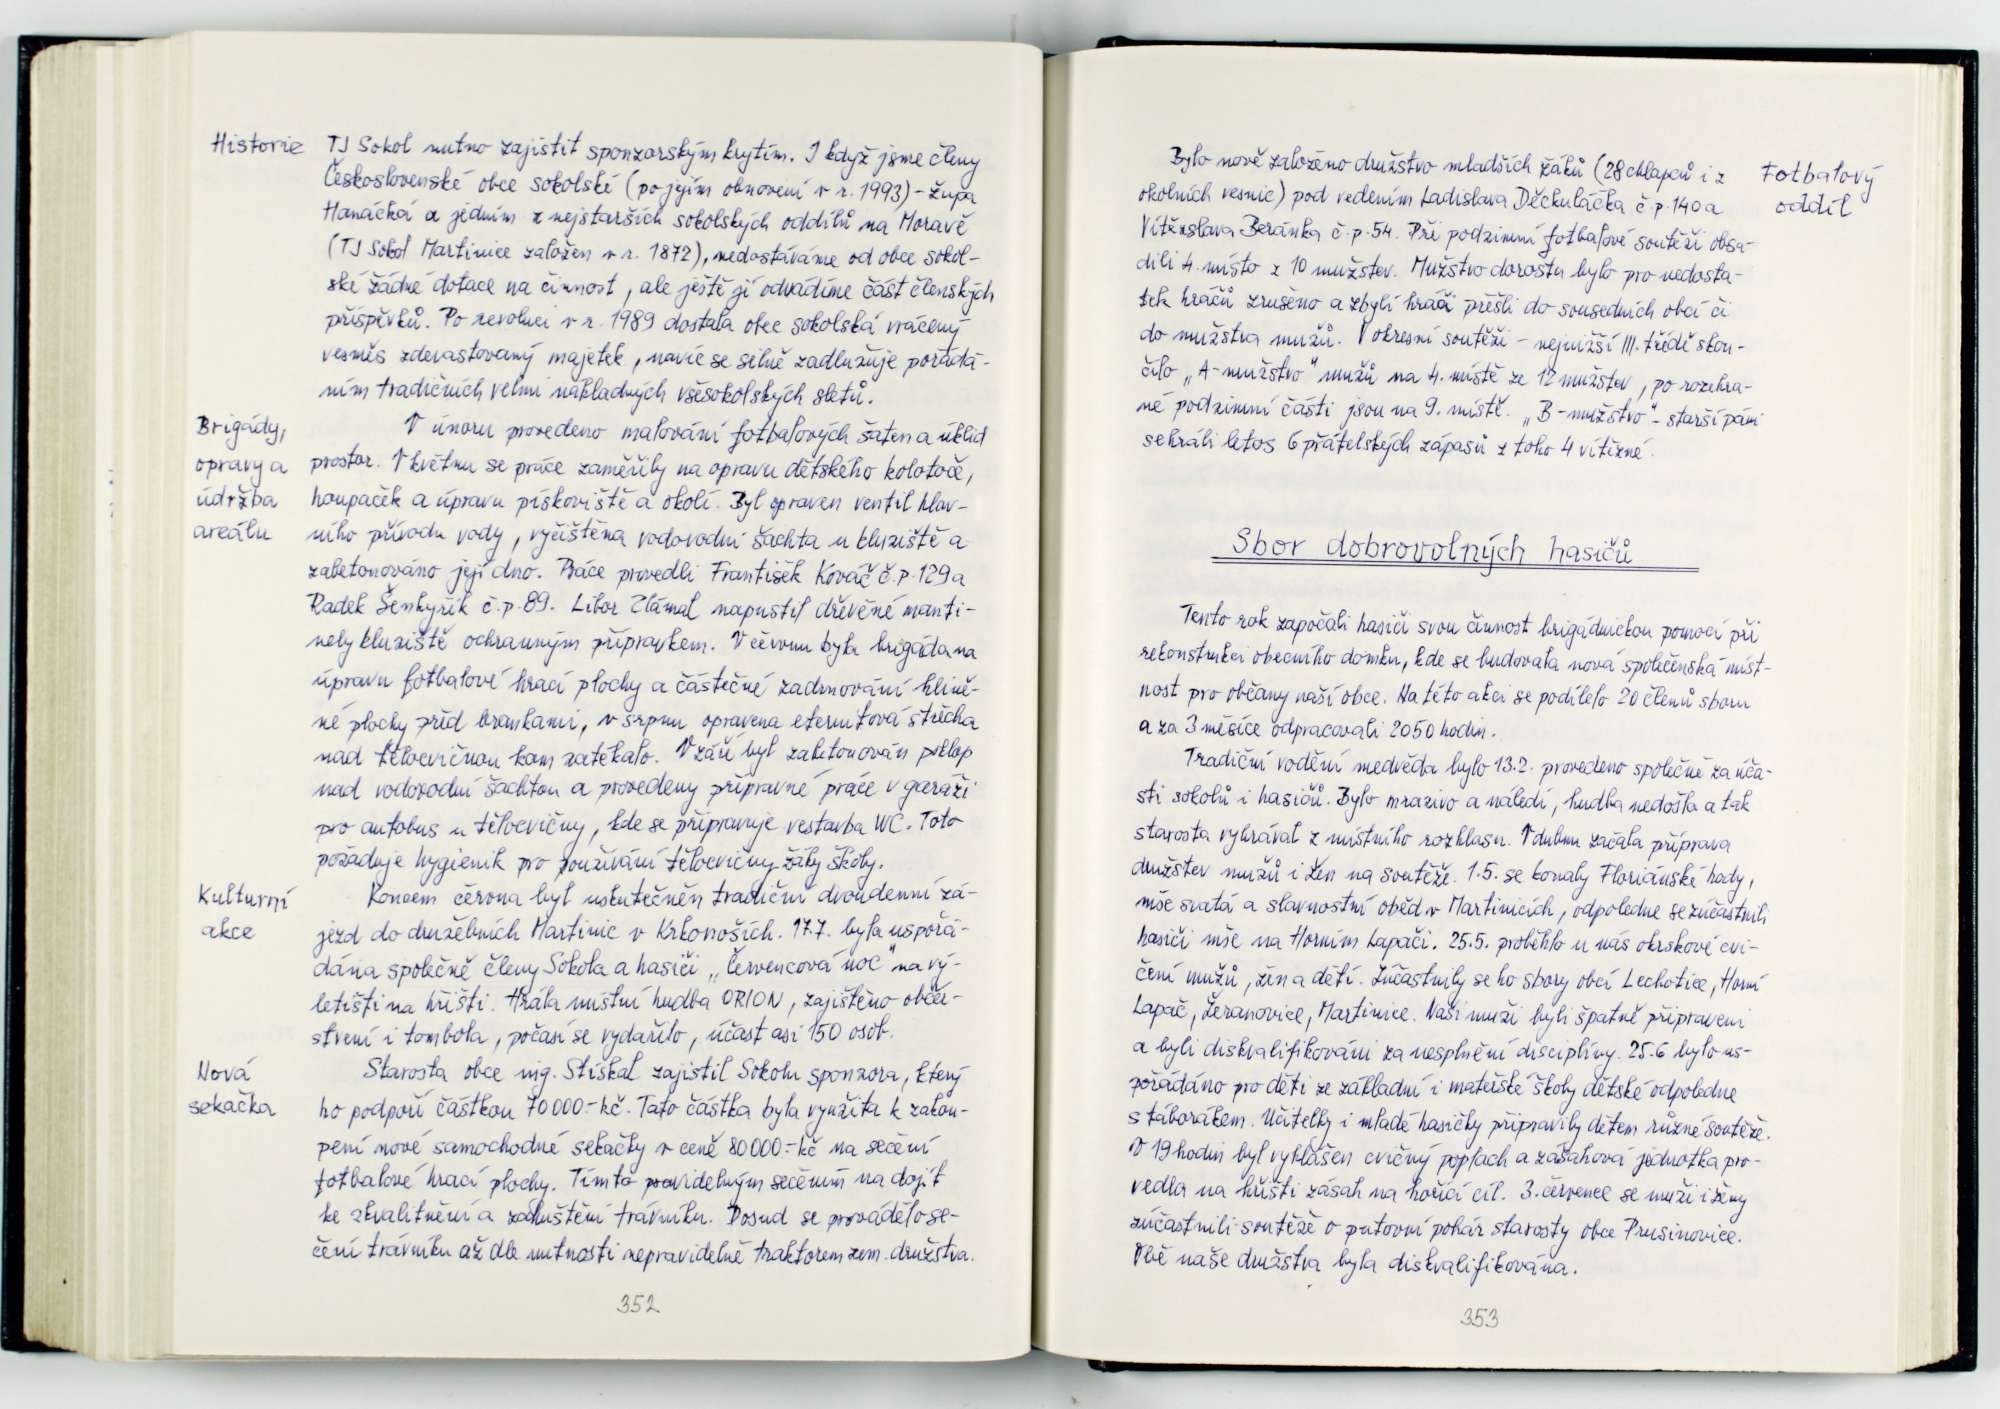 Historie
TJ Sokol nutno zajistit sponzorským krytím. I když jsme členy
Československé obce sokolské (po jejím obnovení v r. 1993) - župa
Hanácká a jedním z nejstarších sokolských oddílů na Moravě
(TJ Sokol Martinice založen v r. 1872), nedostáváme od obce sokol-
ské žádné dotace na činnost, ale ještě jí odvádíme část členských
příspěvků. Po revoluci v r. 1989 dostala obec sokolská vrácený
vesměs zdevastovaný majetek, navíc se silně zadlužuje pořádá-
ním tradičních velmi nákladných všesokolských sletů.
Brigády,
opravy a
údržba
areálu
V únoru provedeno malování fotbalových šaten a úklid
prostor. V květnu se práce zaměřily na opravu dětského kolotoče,
houpaček a úpravu pískoviště a okolí. Byl opraven ventil hlav-
ního přívodu vody, vyčištěna vodovodní šachta u kluziště a
zabetonováno její dno. Práce provedli František Kovář č.p. 129 a
Radek Šenkyřík č.p. 89. Libor Zlámal napustil dřevěné manti-
nely kluziště ochranným přípravkem. V červnu byla brigáda na
úpravu fotbalové hrací plochy a částečné zadrnování hlině-
né plochy před brankami, v srpnu opravena eternitová střecha
nad tělocvičnou kam zatékalo. V září byl zabetonován poklop
nad vodovodní šachtou a provedeny přípravné práce v garáži
pro autobus u tělocvičny, kde se připravuje vestavba WC. Toto
požaduje hygienik pro používání tělocvičny žáky školy.
Kulturní
akce
Koncem června byl uskutečněn tradiční dvoudenní zá-
jezd do družebních Martinic v Krkonoších. 17.7. byla uspořá-
dána společně členy Sokola a hasiči „Červencová noc" na vý-
letišti na hřišti. Hrála místní hudba ORION, zajištěno občer-
stvení i tombola, počasí se vydařilo, účast asi 150 osob.
Nová
sekačka
Starosta obce ing. Stískal zajistil Sokolu sponzora, který
ho podpoří částkou 70 000.- kč. Tato částka byla využita k zakou-
pení nové samochodné sekačky v ceně 80 000.- kč na sečení
fotbalové hrací plochy. Tímto pravidelným sečením má dojít
ke zkvalitnění a zahuštění trávníku. Dosud se provádělo se-
čení trávníku až dle nutnosti nepravidelně traktorem zem. družstva.
352
Fotbalový
oddíl
Bylo nově založeno družstvo mladších žáků (28 chlapců i z
okolních vesnic) pod vedením Ladislava Děckuláčka č.p. 140 a
Vítězslava Beránka č.p. 54. Při podzimní fotbalové soutěži obsa-
dili 4. místo z 10 mužstev. Mužstvo dorostu bylo pro nedosta-
tek hráčů zrušeno a zbylí hráči přešli do sousedních obcí či
do mužstva mužů. V okresní soutěži - nejnižší III. třídě skon-
čilo „A-mužstvo" mužů na 4. místě ze 12 mužstev, po rozehra-
né podzimní části jsou na 9. místě. „B-mužstvo" - starší páni
sehráli letos 6 přátelských zápasů z toho 4 vítězné.
Sbor dobrovolných hasičů
Tento rok započali hasiči svou činnost brigádnickou pomocí při
rekonstrukci obecního domku, kde se budovala nová společenská míst-
nost pro občany naší obce. Na této akci se podílelo 20 členů sboru
a za 3 měsíce odpracovali 2050 hodin.
Tradiční vodění medvěda bylo 13.2. provedeno společně za úča-
sti sokolů i hasičů. Bylo mrazivo a náledí, hudba nedošla a tak
starosta vyhrával z místního rozhlasu. V dubnu začala příprava
družstev mužů i žen na soutěže. 1.5. se konaly Floriánské hody,
mše svatá a slavnostní oběd v Martinicích, odpoledne se zúčastnili
hasiči mše na Horním Lapači. 25.5. proběhlo u nás okrskové cvi-
čení mužů, žen a dětí. Zúčastnily se ho sbory obcí Lechotice, Horní
Lapač, Žeranovice, Martinice. Naši muži byli špatně připraveni
a byli diskvalifikováni za nesplnění disciplíny. 25.6 bylo us-
pořádáno pro děti ze základní i mateřské školy dětské odpoledne
s táborákem. Učitelky i mladé hasičky připravily dětem různé soutěže.
V 19 hodin byl vyhlášen cvičný poplach a zásahová jednotka pro-
vedla na hřišti zásah na hořící cíl. 3. července se muži i ženy
zúčastnili soutěže o putovní pohár starosty obce Prusinovice.
Obě naše družstva byla diskvalifikována.
353